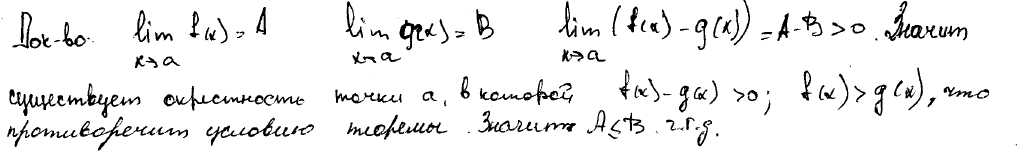 Док-во: lim f(x) = A lim g(x) = B lim (f(x) - g(x)) = A - B > 0. Значит
x→a x→a x→a
существует окрестность точки a, в которой f(x) - g(x) > 0; f(x) > g(x), что
противоречит условию теоремы. Значит A ≤ B. ч.т.д.